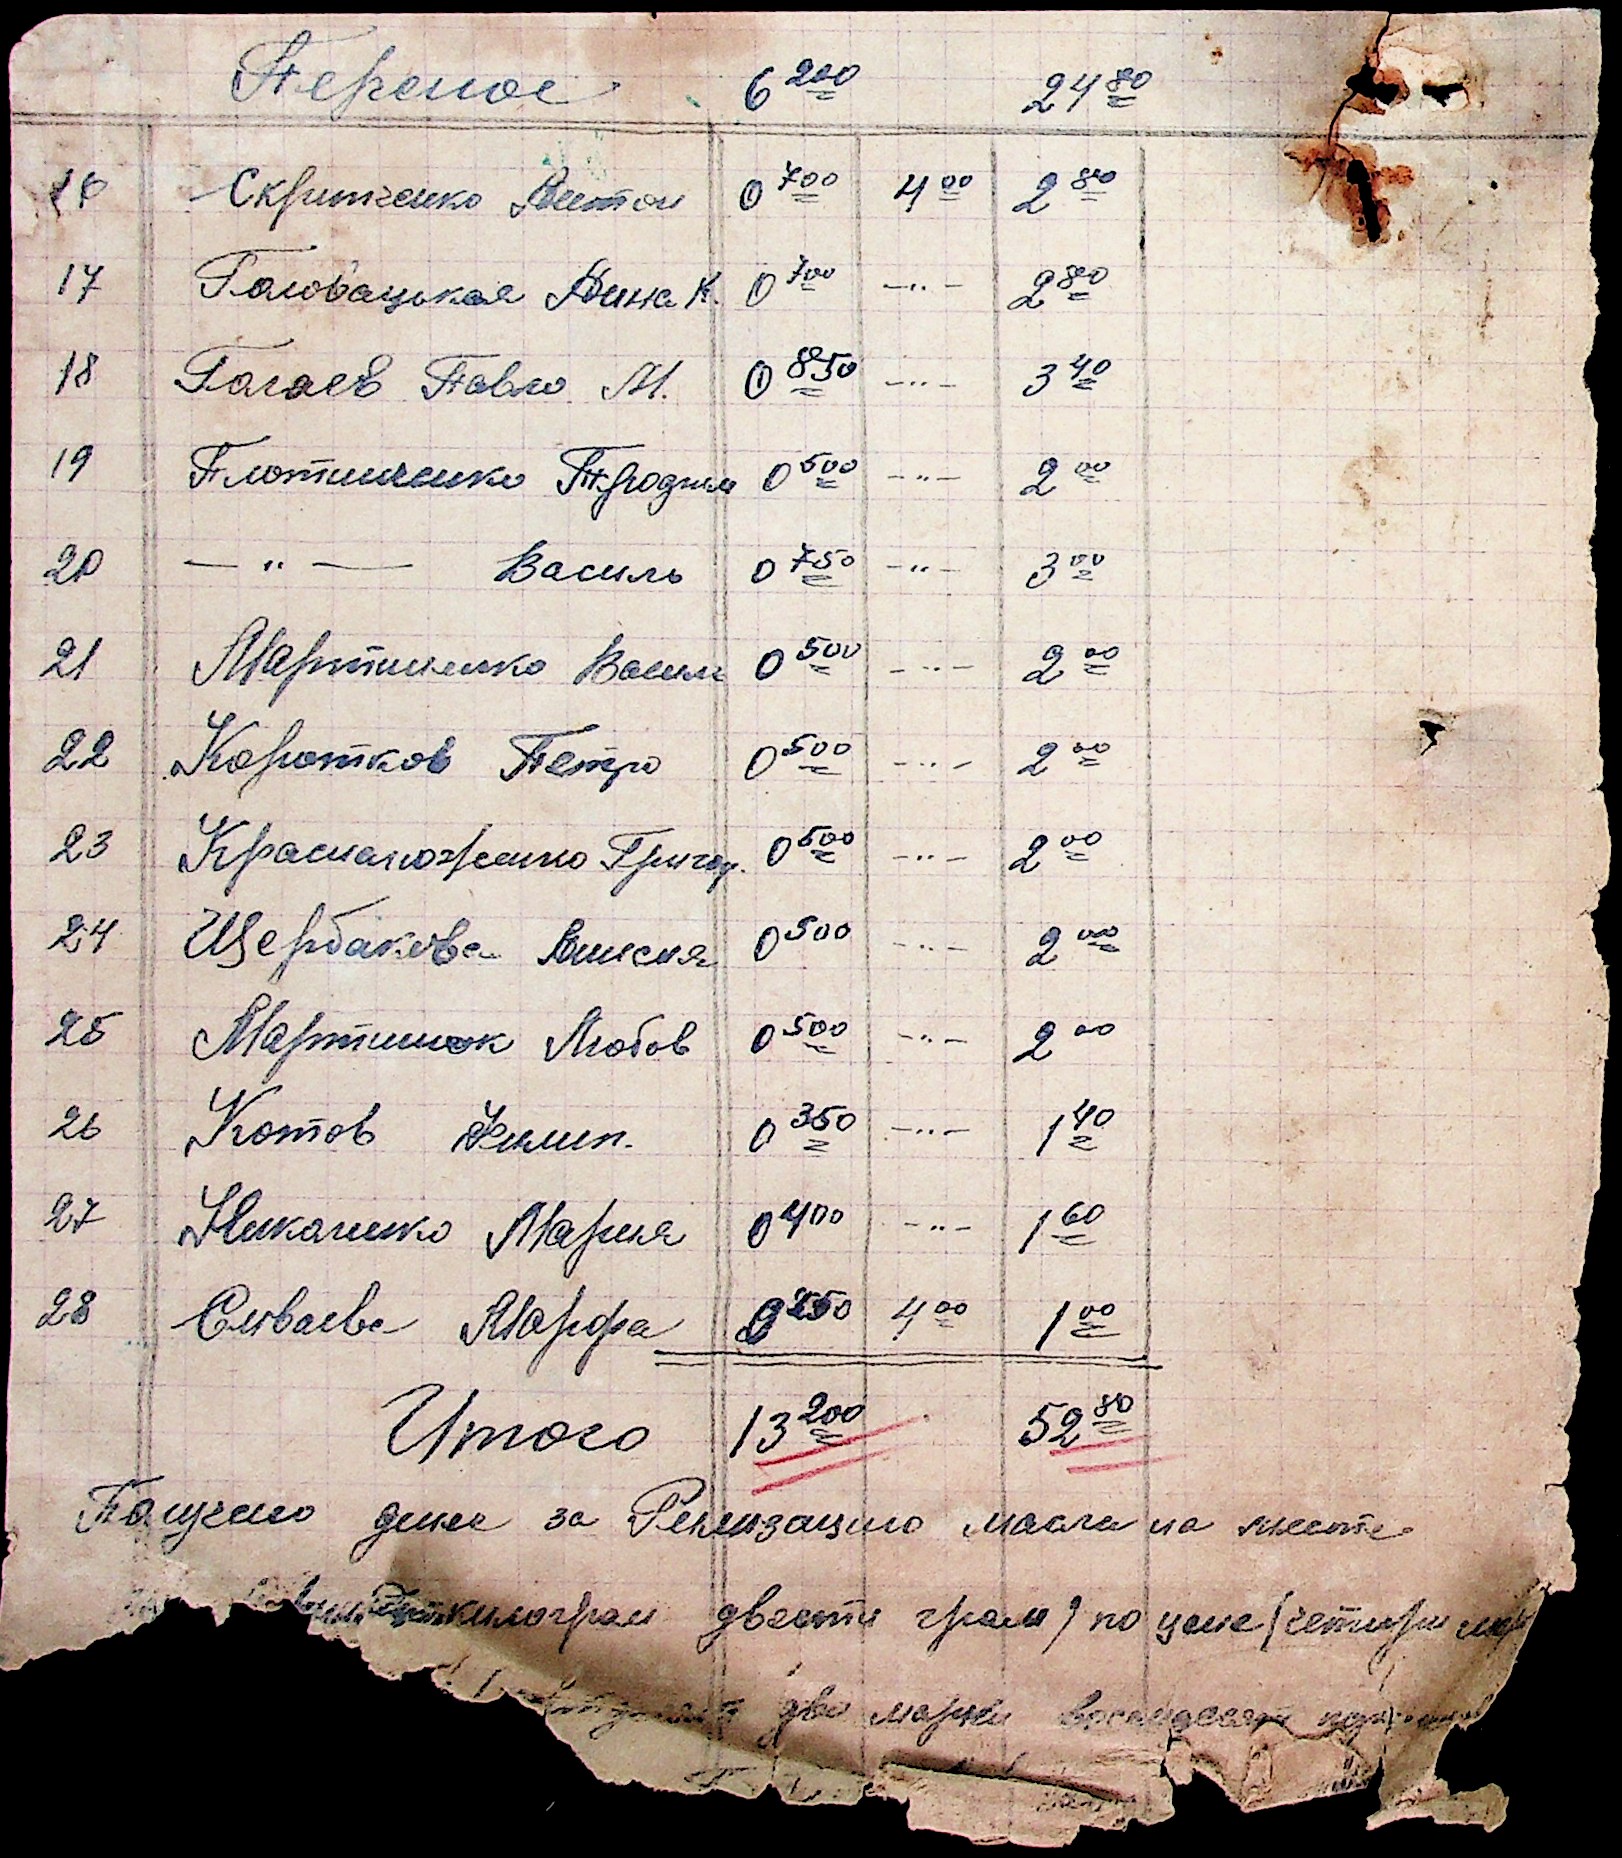 Перенос 6 200 24 80
16 Скрипченко Антон 0 700 4 00 2 80
17 Головацькая Анна К. 0 700 —"— 2 80
18 Гагаев Павло М. 0 850 —"— 3 40
19 Плотниченко Продим 0 500 —"— 2 00
20 —"— Василь 0 750 —"— 3 00
21 Мартиненко Васили 0 500 —"— 2 00
22 Коротков Петро 0 500 —"— 2 00
23 Красножженко Григор. 0 500 —"— 2 00
24 Щербакова Анисия 0 500 —"— 2 00
25 Мартинюк Любов 0 500 —"— 2 00
26 Котов Филип. 0 350 —"— 1 40
27 Никаленко Мария 0 400 —"— 1 60
28 Сиваева Марфа 0 250 4 00 1 00
Итого 13 200 52 80
Получено денег за Реализацию масла на месте
килограм двести грам) по цене (четыри мар
две марки восемдесят